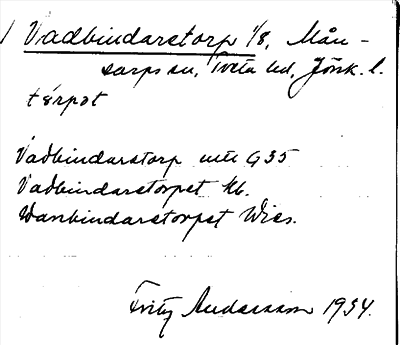 Vadbindarstorp 1/8, Mån-
sarps sn, Tveta hd, Jönk. l.
tórpət
Vadbindarstorp utt G35
Vadbindarstorpet Kb.
Wanbindarstorpet Wies.
Fritz Andersson 1934.